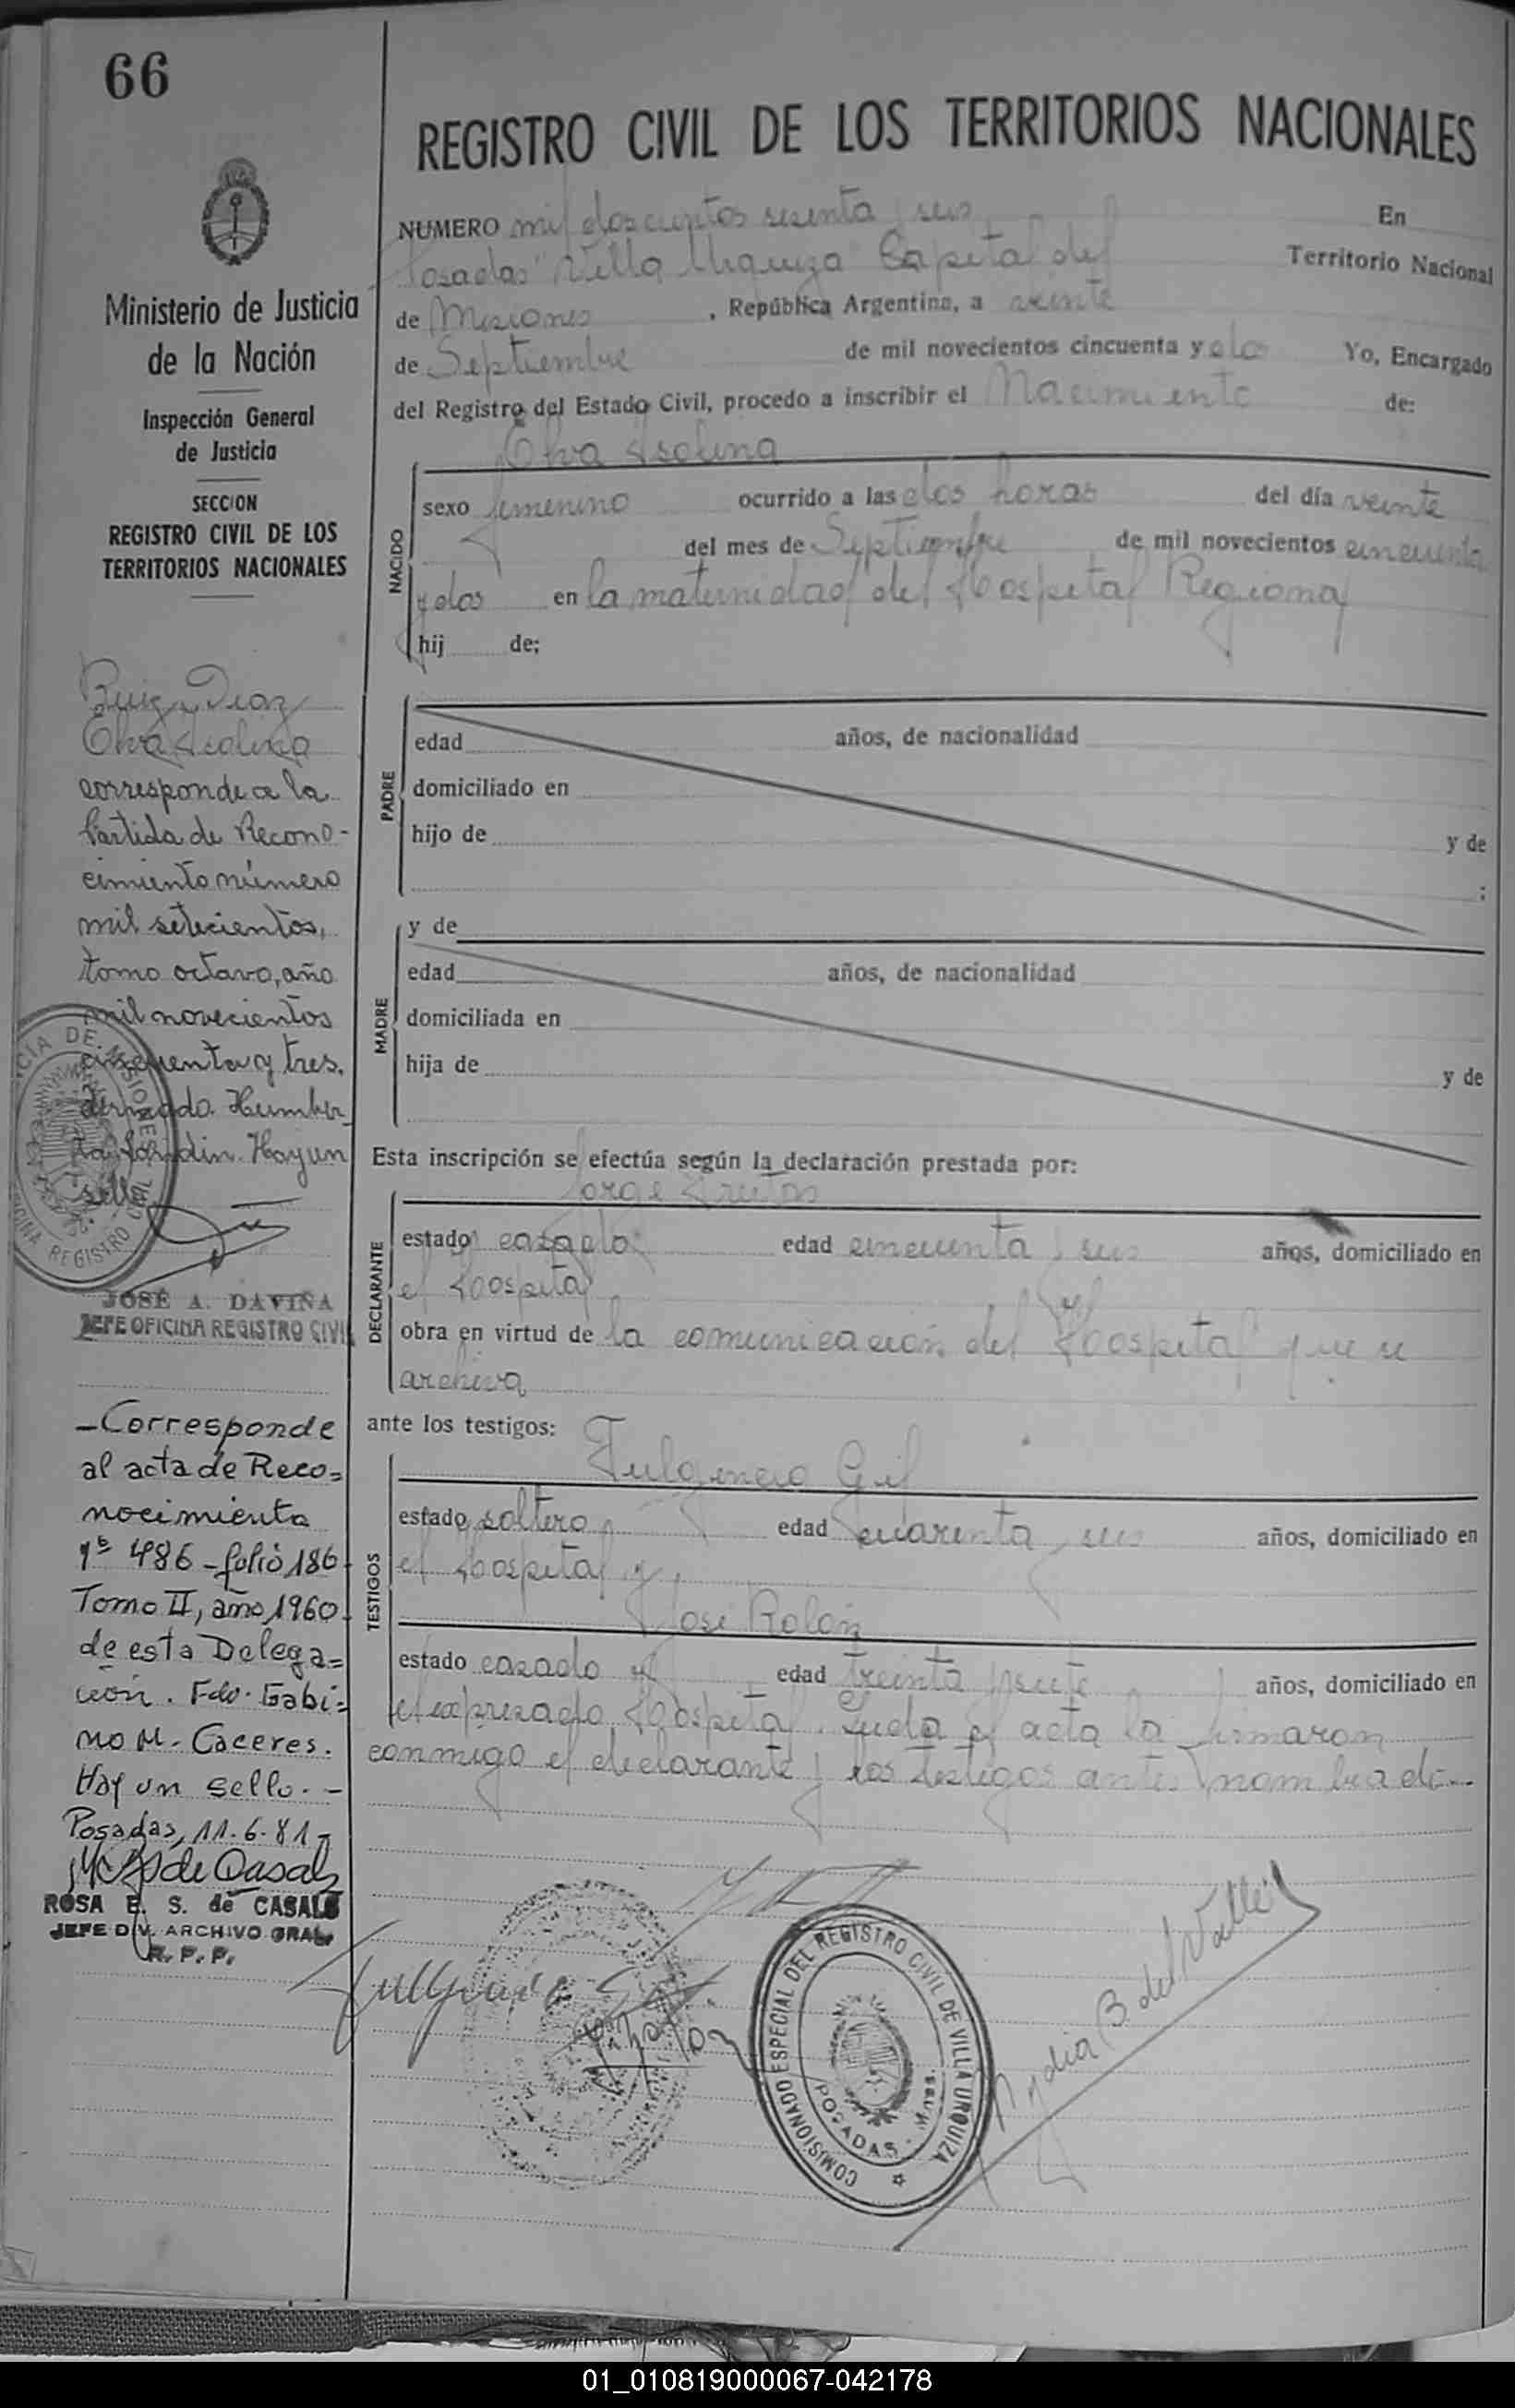 66
Ministerio de Justicia
de la Nación
Inspección General
de Justicia
SECCION
REGISTRO CIVIL DE LOS
TERRITORIOS NACIONALES
Ruiz Diaz
Elva Isolina
corresponde a la
Partida de Recono-
cimiento número
mil setecientos,
tomo octavo, año
mil novecientos
cincuenta y tres.
firmado. Humber
to Hay un
sello
JOSÉ A. DAVIÑA
JEFE OFICINA REGISTRO CIVIL
- Corresponde
al acta de Reco=
nocimiento
nº 486 - folio 186
Tomo II, año 1960
de esta Delega=
ción. Fdo. Gabi=
no M. Caceres.
Hay un sello. -
Posadas, 11.6.81 -
de Casals
ROSA E. S. de CASALS
JEFE DIV. ARCHIVO GRAL.
R. P. P.
REGISTRO CIVIL DE LOS TERRITORIOS NACIONALES
NUMERO mil doscientos sesenta y seis En
Posadas "Villa Urquiza" Capital del Territorio Nacional
de Misiones, República Argentina, a veinte
de Septiembre de mil novecientos cincuenta y dos Yo, Encargado
del Registro del Estado Civil, procedo a inscribir el Nacimiento de:
Elva Isolina
NACIDO
sexo femenino ocurrido a las dos horas del día veinte
del mes de Septiembre de mil novecientos cincuenta
y dos en la maternidad del Hospital Regional
hij de;
PADRE
edad años, de nacionalidad
domiciliado en
hijo de y de
;
MADRE
y de
edad años, de nacionalidad
domiciliada en
hija de y de
Esta inscripción se efectúa según la declaración prestada por:
DECLARANTE
Jorge Frutos
estado casado edad cincuenta y seis años, domiciliado en
el Hospital y
obra en virtud de la comunicación del Hospital que se
archiva
ante los testigos:
TESTIGOS
Fulgencio Gil
estado soltero edad cuarenta y seis años, domiciliado en
el Hospital y
José Rolón
estado casado y edad treinta y siete años, domiciliado en
el expresado Hospital. Leida el acta la firmaron
conmigo el declarante y los testigos antes nombrado...
Fulgencio Gil
Rolon
COMISIONADO ESPECIAL DEL REGISTRO CIVIL DE VILLA URQUIZA
POSADAS - Mnes.
Nydia B del Valle
01_010819000067-042178